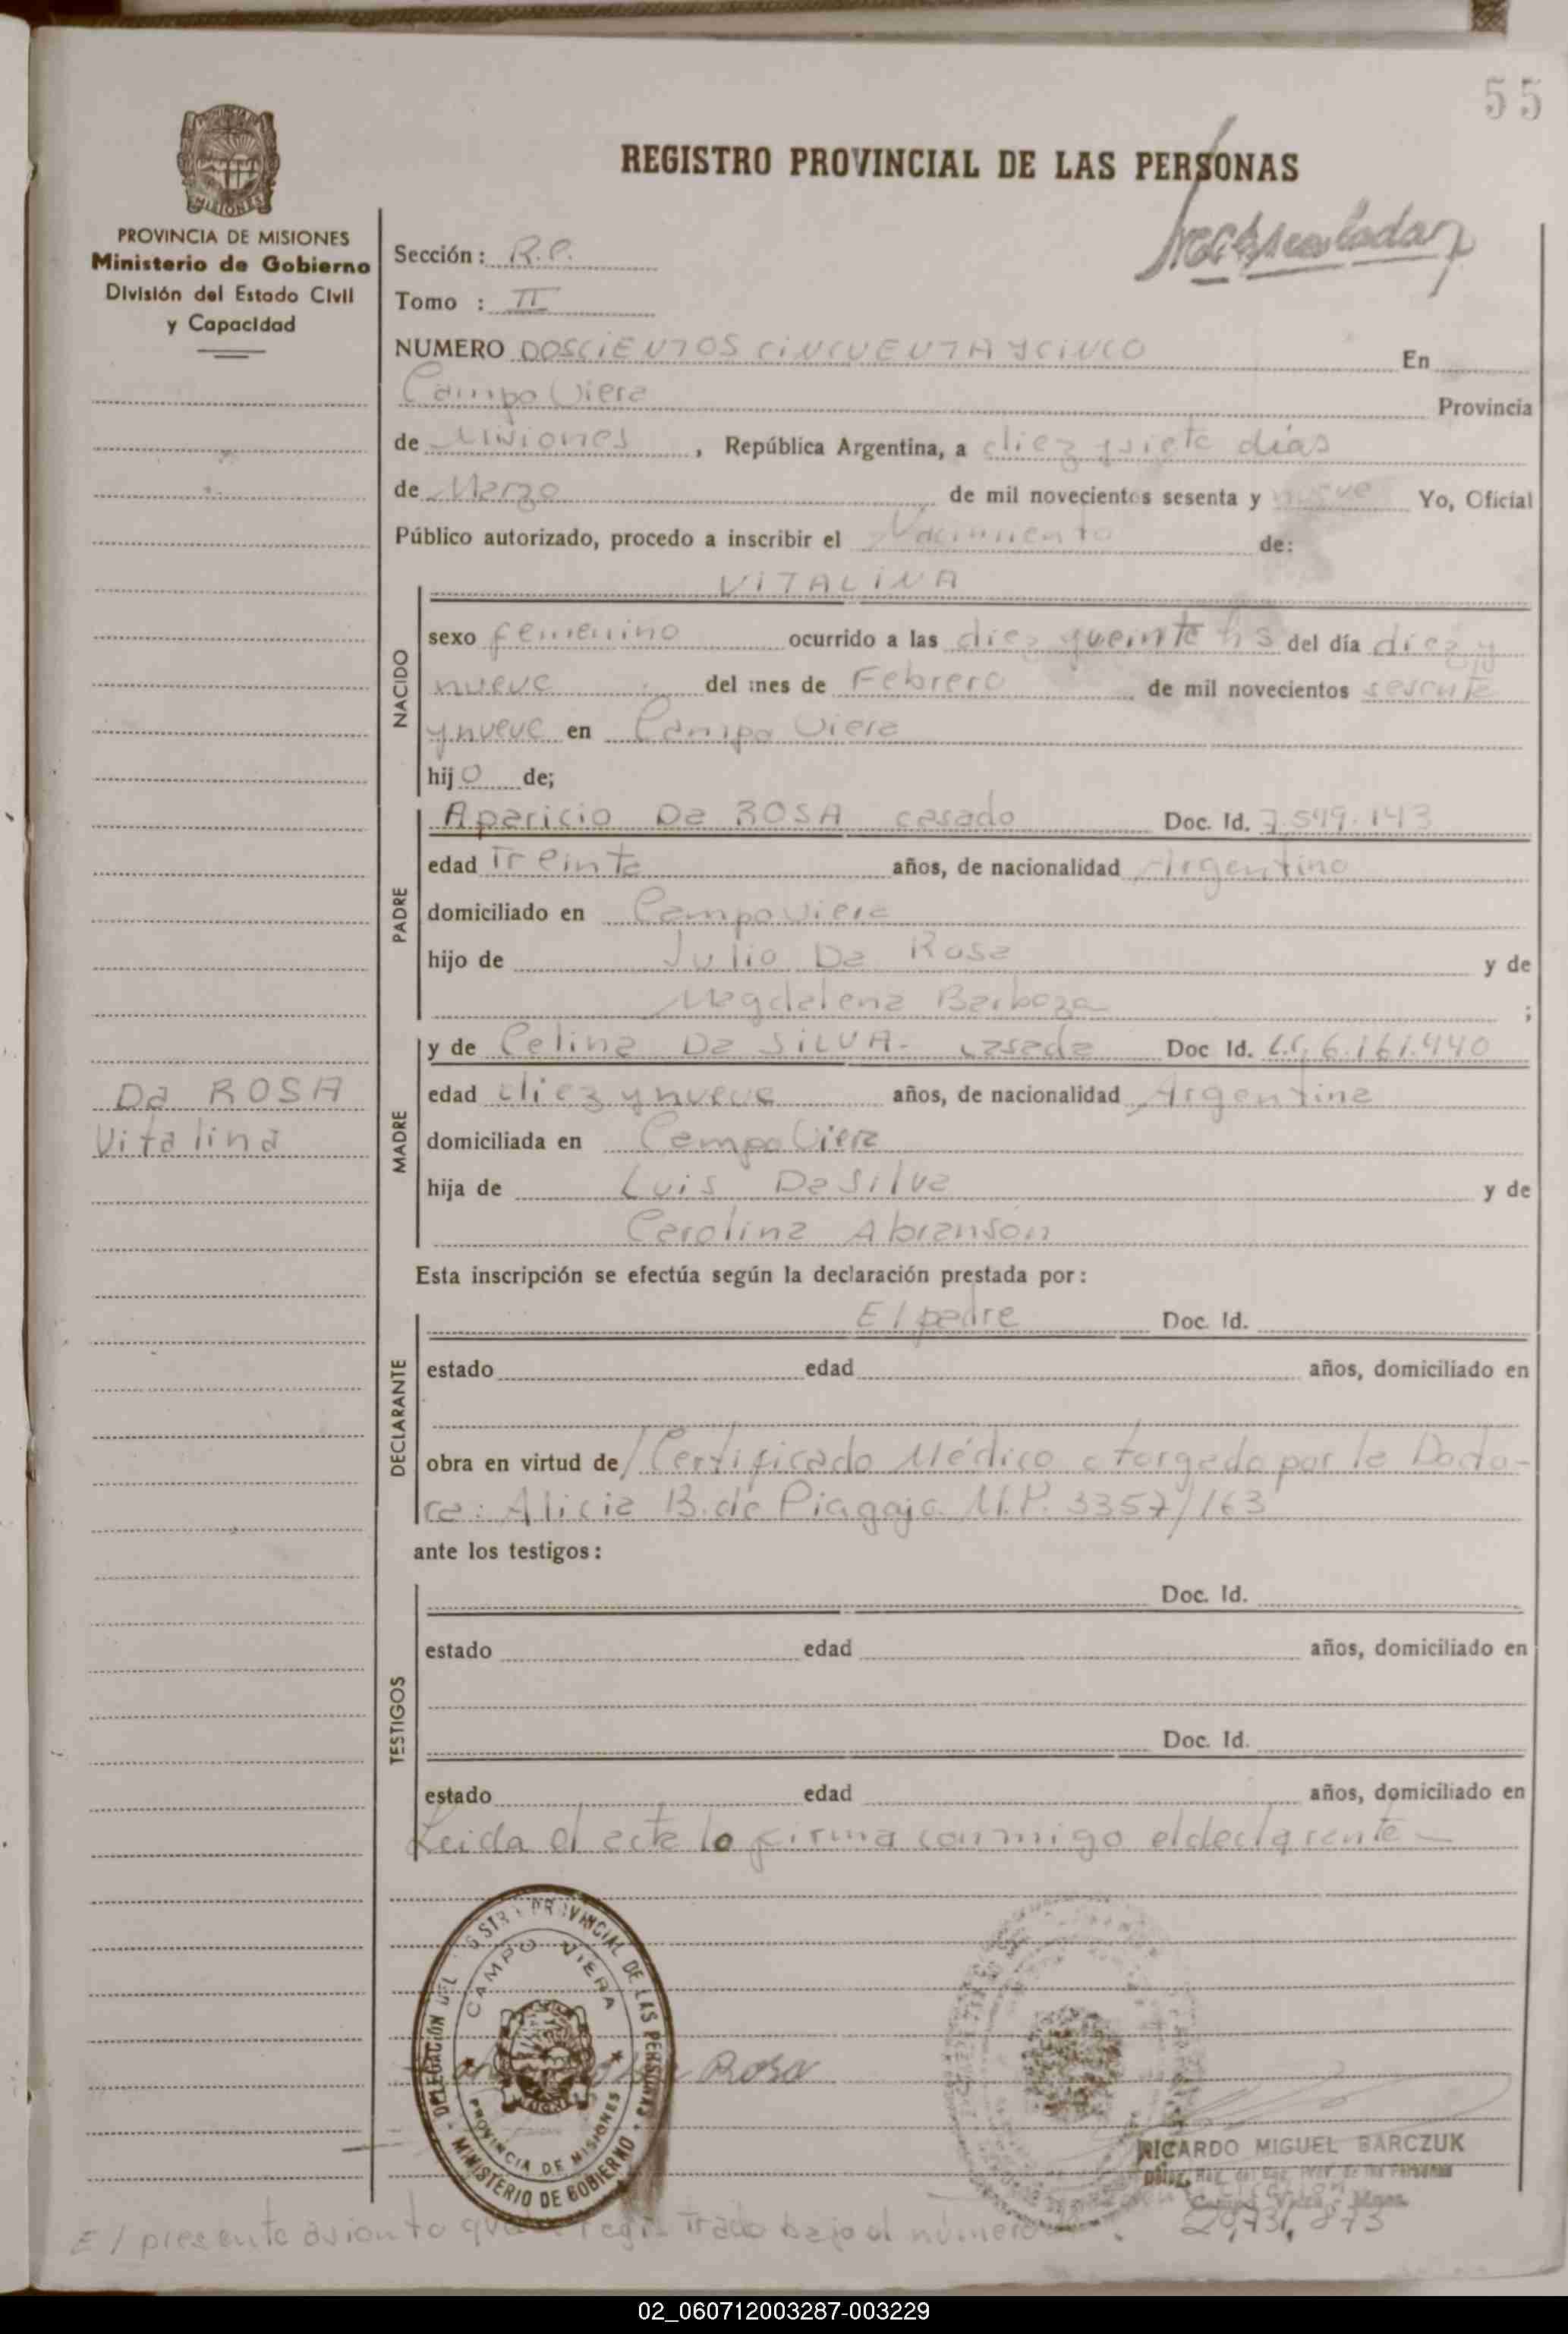 55
REGISTRO PROVINCIAL DE LAS PERSONAS
PROVINCIA DE MISIONES
Ministerio de Gobierno
División del Estado Civil
y Capacidad
Sección: R.P.
Tomo : II
NUMERO DOSCIENTOS CINCUENTA Y CINCO En
Campo Viera Provincia
de Misiones, República Argentina, a diez y siete días
de Marzo de mil novecientos sesenta y nueve Yo, Oficial
Público autorizado, procedo a inscribir el Nacimiento de:
VITALINA
NACIDO
sexo femenino ocurrido a las diez y veinte hs del día diez y
nueve del mes de Febrero de mil novecientos sesenta
y nueve en Campo Viera
hijo de;
PADRE
Aparicio Da ROSA casado Doc. Id. 7.599.143
edad Treinta años, de nacionalidad Argentino
domiciliado en Campo Viera
hijo de Julio Da Rosa y de
Magdalena Barboza ;
MADRE
y de Celina Da SILVA- casada Doc Id. L.C. 6.161.440
edad diez y nueve años, de nacionalidad Argentina
domiciliada en Campo Viera
hija de Luis Da Silva y de
Carolina Abranson
Da ROSA
Vitalina
Esta inscripción se efectúa según la declaración prestada por:
DECLARANTE
El padre Doc. Id.
estado edad años, domiciliado en
obra en virtud de / Certificado Médico otorgado por la Docto-
ra: Alicia B. de Piagajo M.P. 3357/163
ante los testigos:
TESTIGOS
Doc. Id.
estado edad años, domiciliado en
Doc. Id.
estado edad años, domiciliado en
Leida el acta lo firma conmigo el declarante-
DELEGACIÓN DEL REGISTRO PROVINCIAL DE LAS PERSONAS
CAMPO VIERA
PROVINCIA DE MISIONES
MINISTERIO DE GOBIERNO
Rosa
RICARDO MIGUEL BARCZUK
El presente asiento registrado bajo el número 20,731,873
02_060712003287-003229